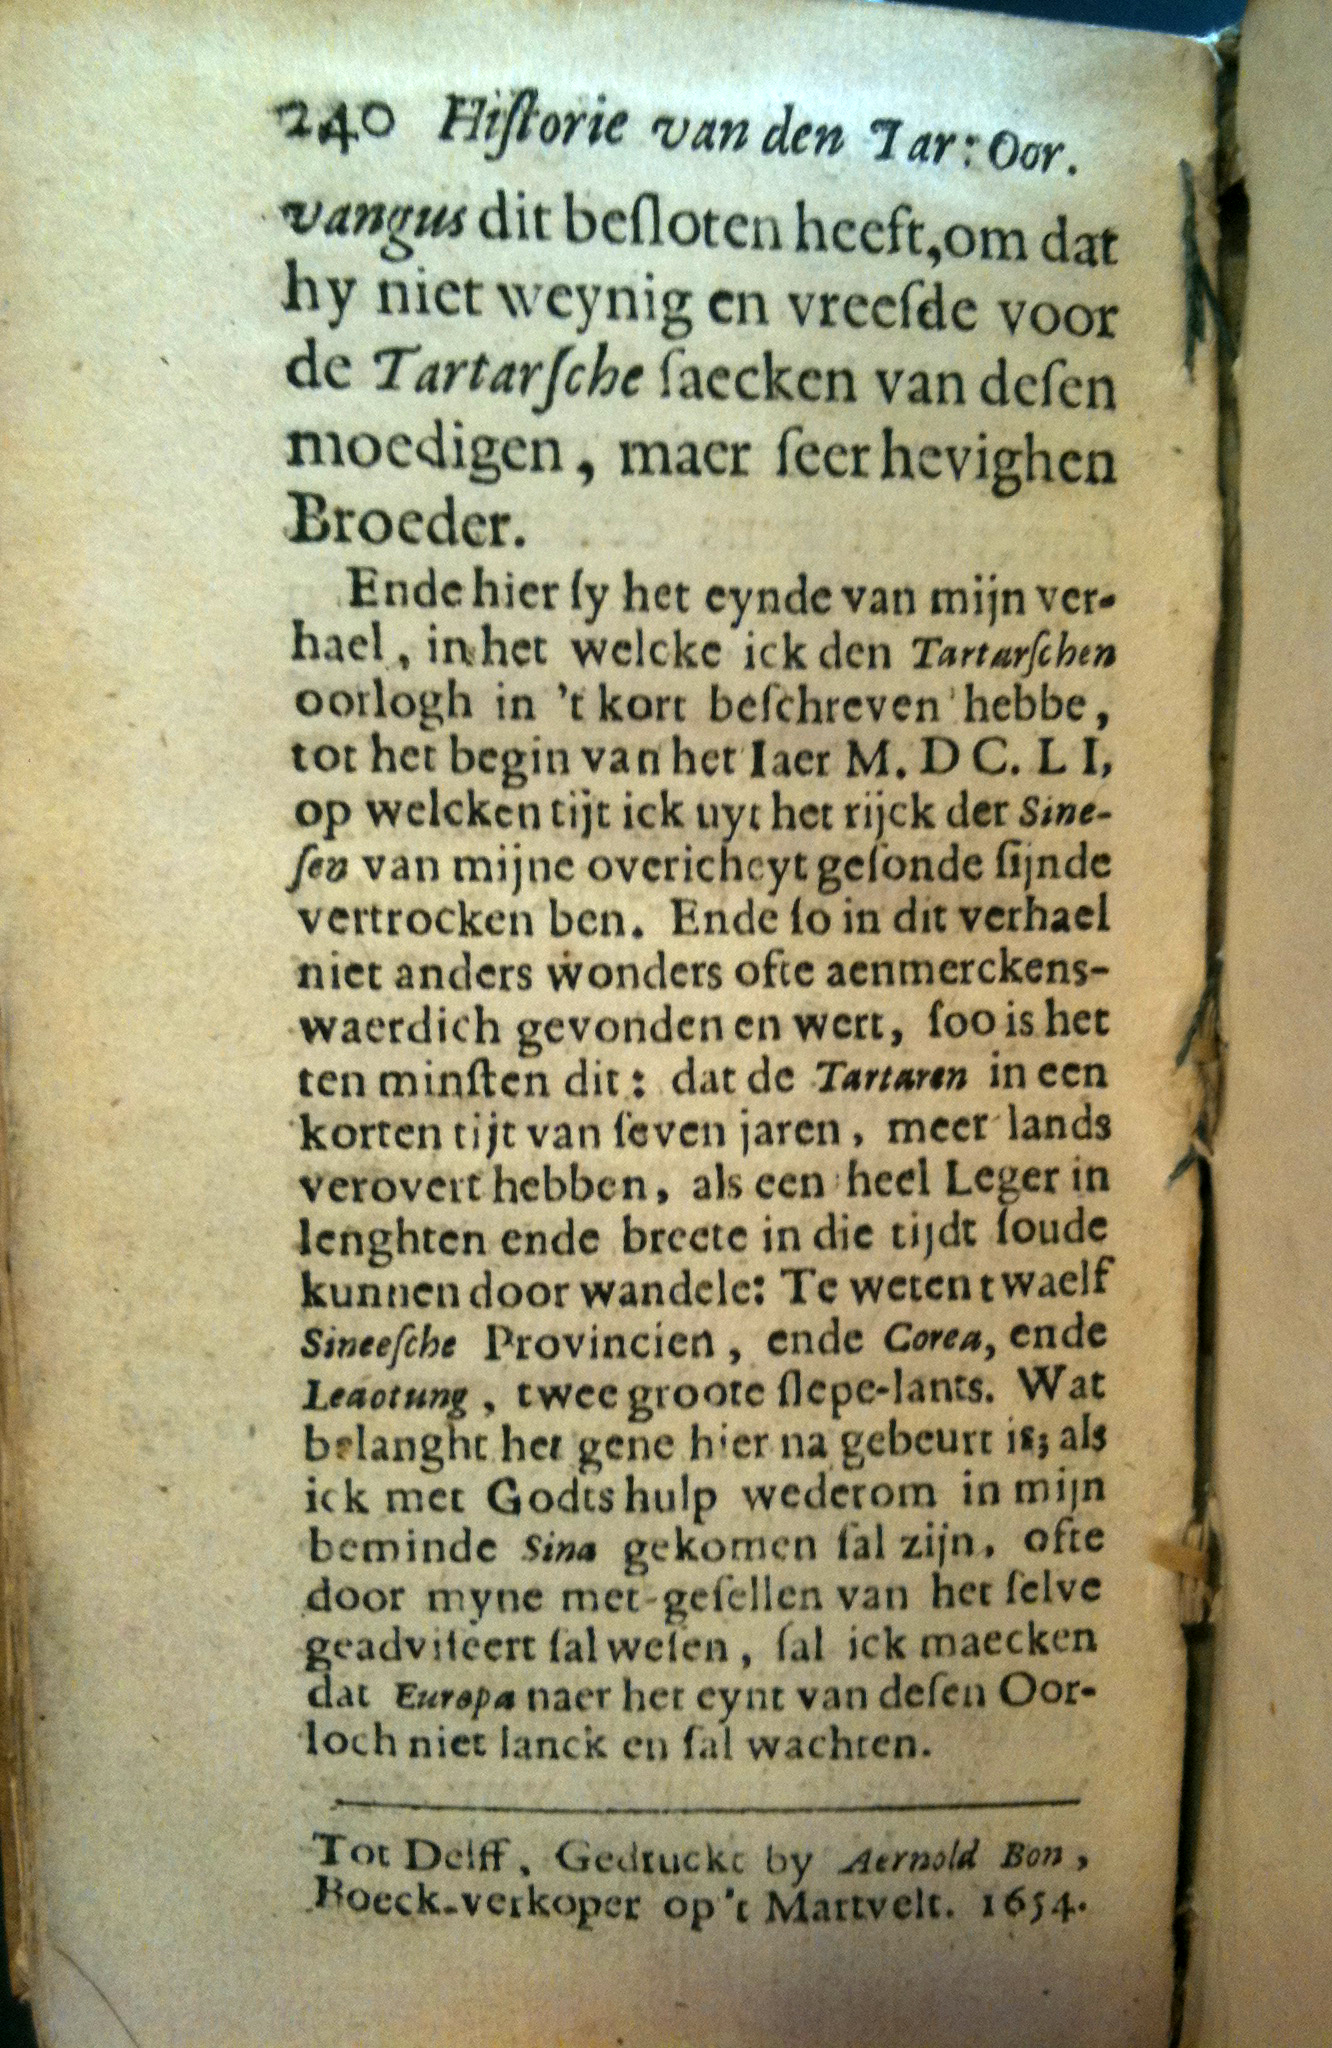 240 Hiſtorie van den Tar: Oor.
vangus dit beſloten heeft, om dat
hy niet weynig en vreeſde voor
de Tartarſche ſaecken van deſen
moedigen, maer ſeer hevighen
Broeder.
Ende hier ſy het eynde van mijn ver-
hael, in het welcke ick den Tartarſchen
oorlogh in 't kort beſchreven hebbe,
tot het begin van het Iaer M. D C. L I,
op welcken tijt ick uyt het rijck der Sine-
ſen van mijne overicheyt geſonde ſijnde
vertrocken ben. Ende ſo in dit verhael
niet anders wonders ofte aenmerckens-
waerdich gevonden en wert, ſoo is het
ten minſten dit: dat de Tartaren in een
korten tijt van ſeven jaren, meer lands
verovert hebben, als een heel Leger in
lenghten ende breete in die tijdt ſoude
kunnen door wandele: Te weten twaelf
Sineeſche Provincien, ende Corea, ende
Leaotung, twee groote ſlepe-lants. Wat
belanght het gene hier na gebeurt is; als
ick met Godts hulp wederom in mijn
beminde Sina gekomen ſal zijn, ofte
door myne met-geſellen van het ſelve
geadviſeert ſal weſen, ſal ick maecken
dat Europa naer het eynt van deſen Oor-
loch niet lanck en ſal wachten.
Tot Delff, Gedruckt by Aernold Bon,
Boeck-verkoper op 't Martvelt. 1654.